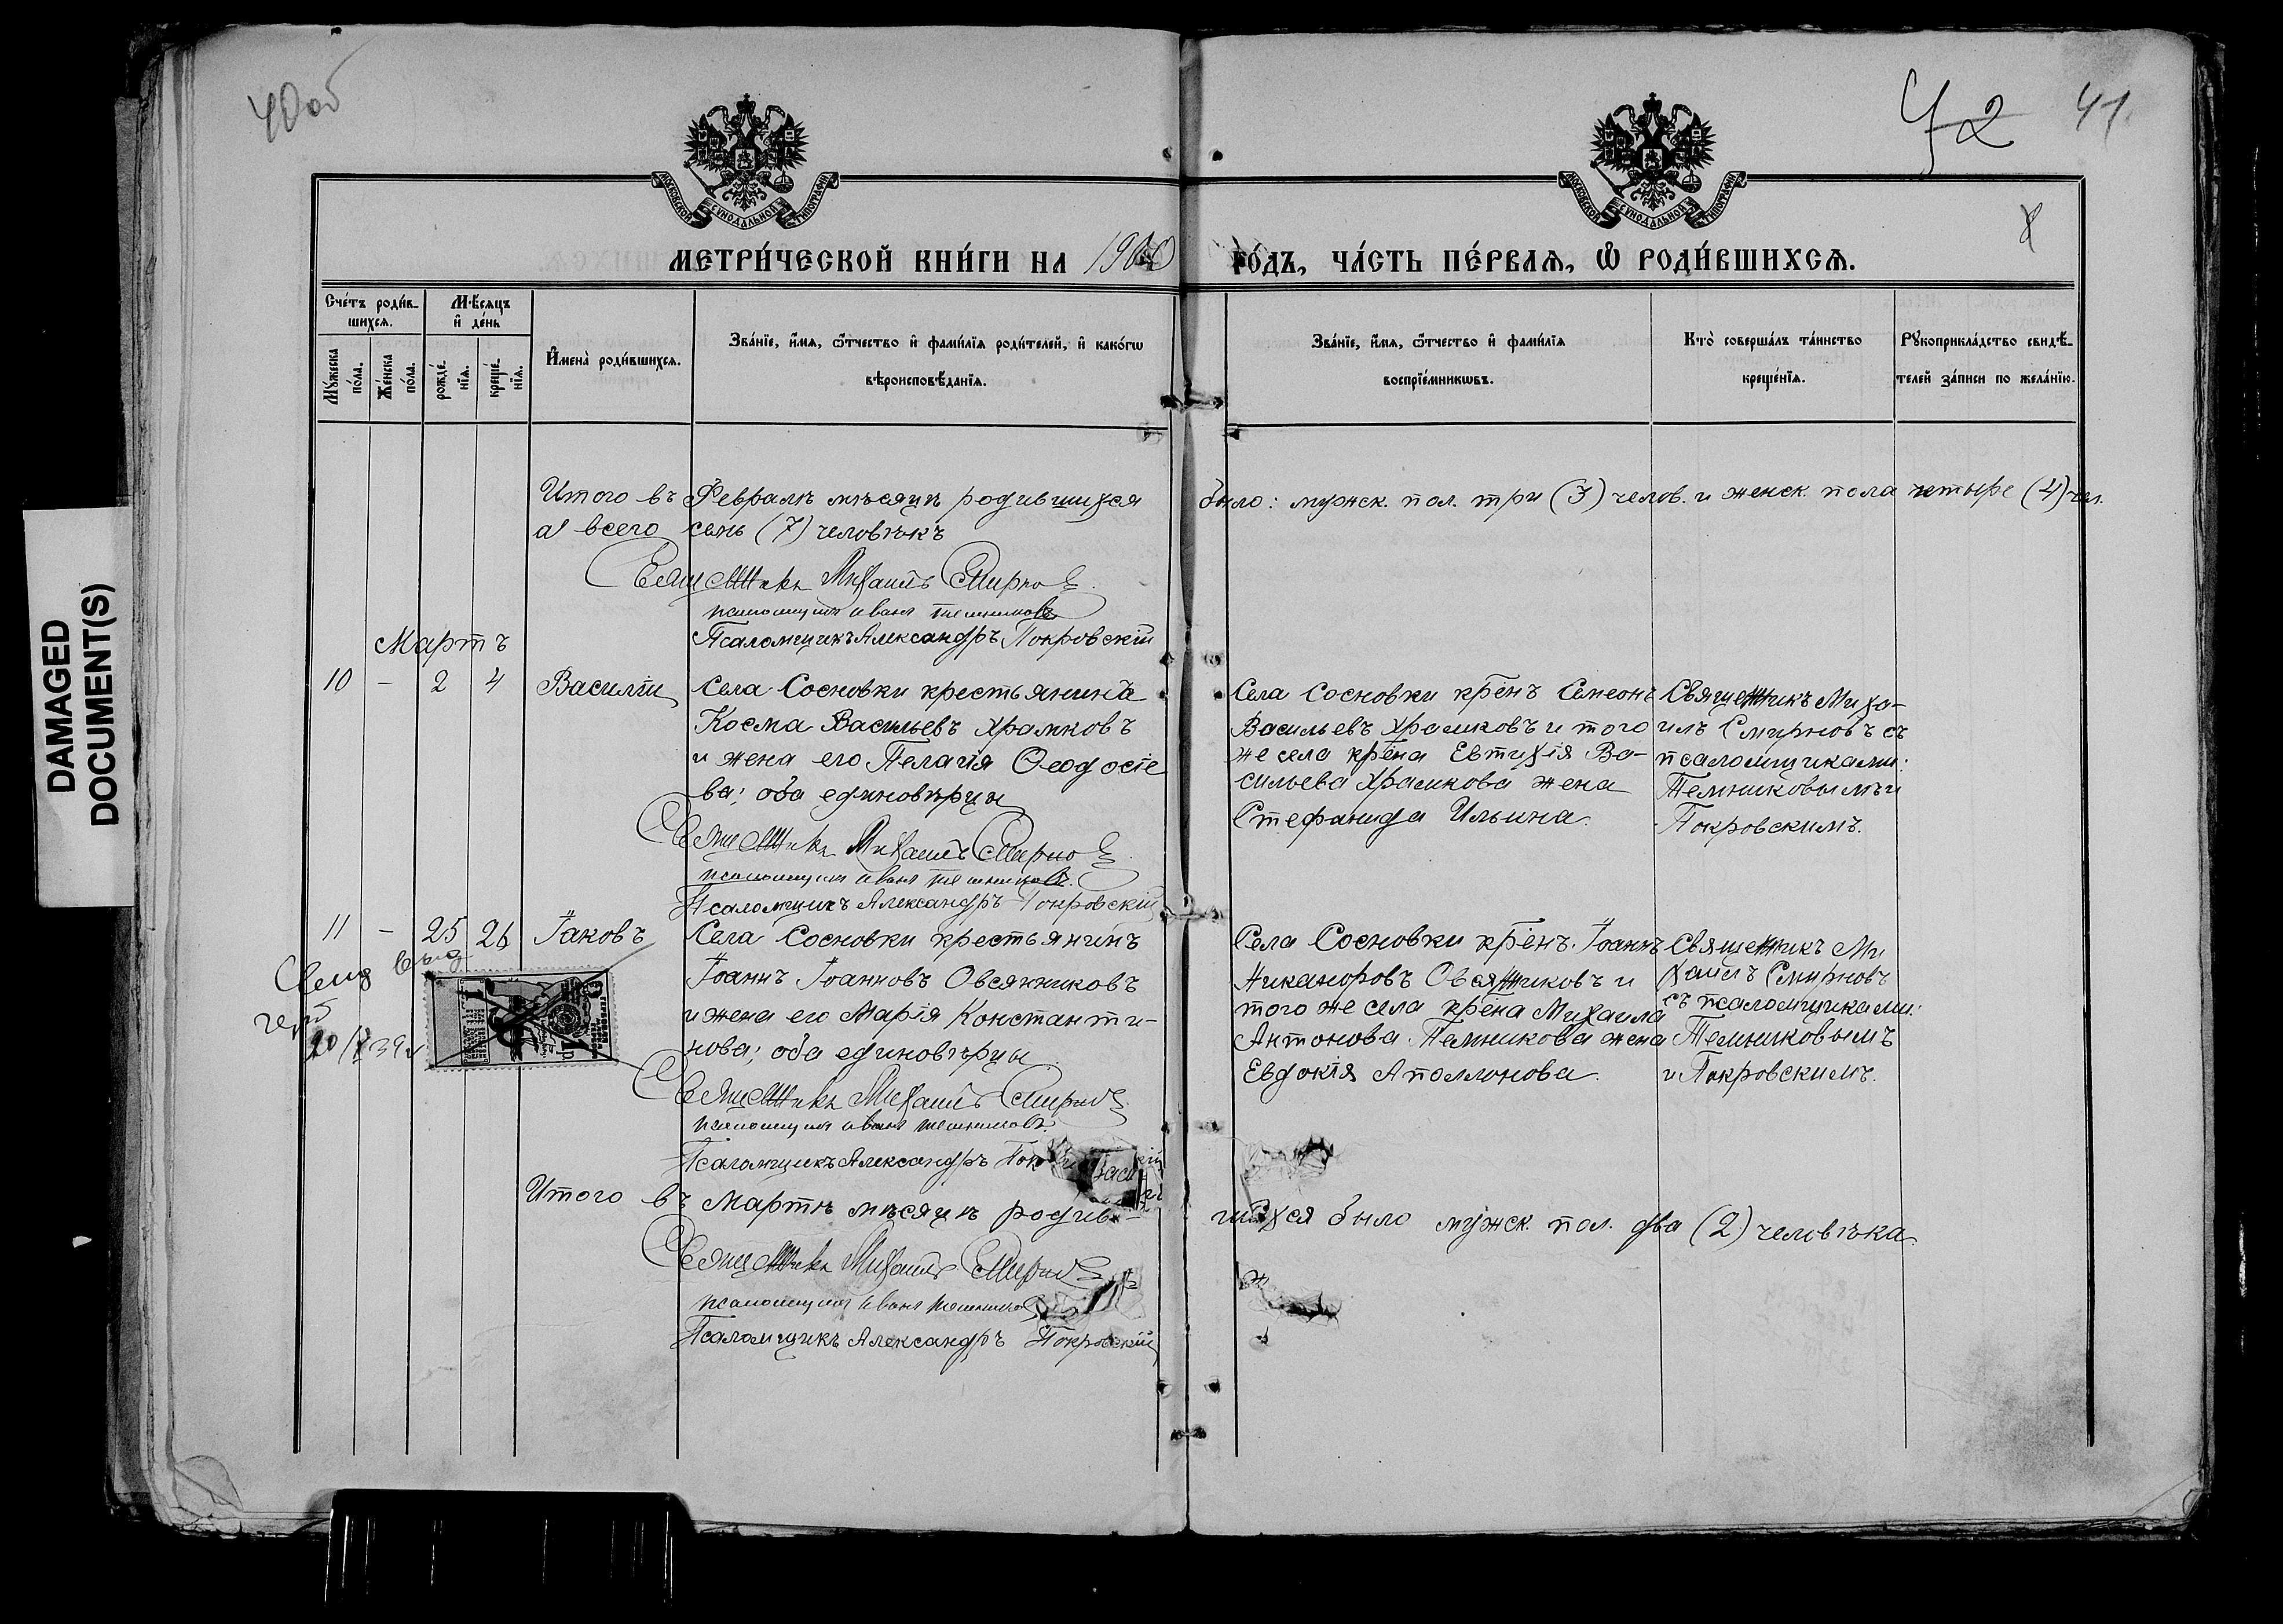 DAMAGED
DOCUMENT(S)
40об
42 41
МОСКОВСКОЙ СѴНОДАЛЬНОЙ ТИПОГРАФІИ
МОСКОВСКОЙ СѴНОДАЛЬНОЙ ТИПОГРАФІИ
МЕТРИ́ЧЕСКОЙ КНИ́ГИ НА 1900 ГО́ДЪ, ЧА́СТЬ ПЕ́РВАѦ, Ѡ҆ РОДИ́ВШИХСѦ.
Сче́тъ роди́в-
шихсѧ.
Мѣ́сѧцъ
и҆ де́нь
Мꙋ́жеска
по́ла.
Же́нска
по́ла.
рожде́-
нїѧ.
креще́-
нїѧ.
И҆мена̀ роди́вшихсѧ.
Зва́нїе, и҆́мѧ, ѻ҆́тчество и҆ фами́лїѧ роди́телей, и҆ како́гѡ
вѣроисповѣ́данїѧ.
Зва́нїе, и҆́мѧ, ѻ҆́тчество и҆ фами́лїѧ
воспрїе́мникѡвъ.
Кто̀ соверша́лъ та́инство
креще́нїѧ.
Рꙋкоприкла́дство свидѣ́-
телей за́писи по жела́нїю.
Итого въ Февралѣ мѣсяцѣ родившихся было: мужск. пол. три (3) челов. и женск. пола четыре (4) чел.
а всего семь (7) человѣкъ
Священникъ Михаилъ Смирнов
псаломщикъ Иванъ Темниковъ
Псаломщикъ Александръ Покровскій
Мартъ
10 - 2 4 Василій
Села Сосновки крестьянинъ
Косма Васильевъ Храмковъ
и жена его Пелагія Ѳеодосіе
ва; оба единовѣрцы
Села Сосновки кр̃нъ Симеонъ
Васильевъ Храмковъ и того
же села кр̃на Евтихія Ва-
сильева Храмкова жена
Стефанида Ильина.
Священникъ Миха-
илъ Смирновъ съ
псаломщиками:
Темниковымъ и
Покровскимъ.
Священникъ Михаилъ Смирнов
псаломщикъ Иванъ Темниковъ.
Псаломщикъ Александръ Покровскій
11 - 25 26 Іаковъ
Села Сосновки крестьянинъ
Іоаннъ Іоанновъ Овсянниковъ
и жена его Марія Константи-
нова; оба единовѣрцы
Села Сосновки кр̃нъ Іоаннъ
Никаноровъ Овсянниковъ и
того же села кр̃на Михаила
Антонова Темникова жена
Евдокія Аполлонова.
Священникъ Ми
хаилъ Смирновъ
съ псаломщиками:
Темниковымъ
и Покровскимъ.
Священникъ Михаилъ Смирнов
псаломщикъ Иванъ Темниковъ.
Псаломщикъ Александръ
Итого въ Мартѣ мѣсяцѣ родив- шихся было мужск. пол. два (2) человѣка
Священникъ Михаилъ Смирнов
псаломщикъ Иванъ
Псаломщикъ Александръ Покровскій